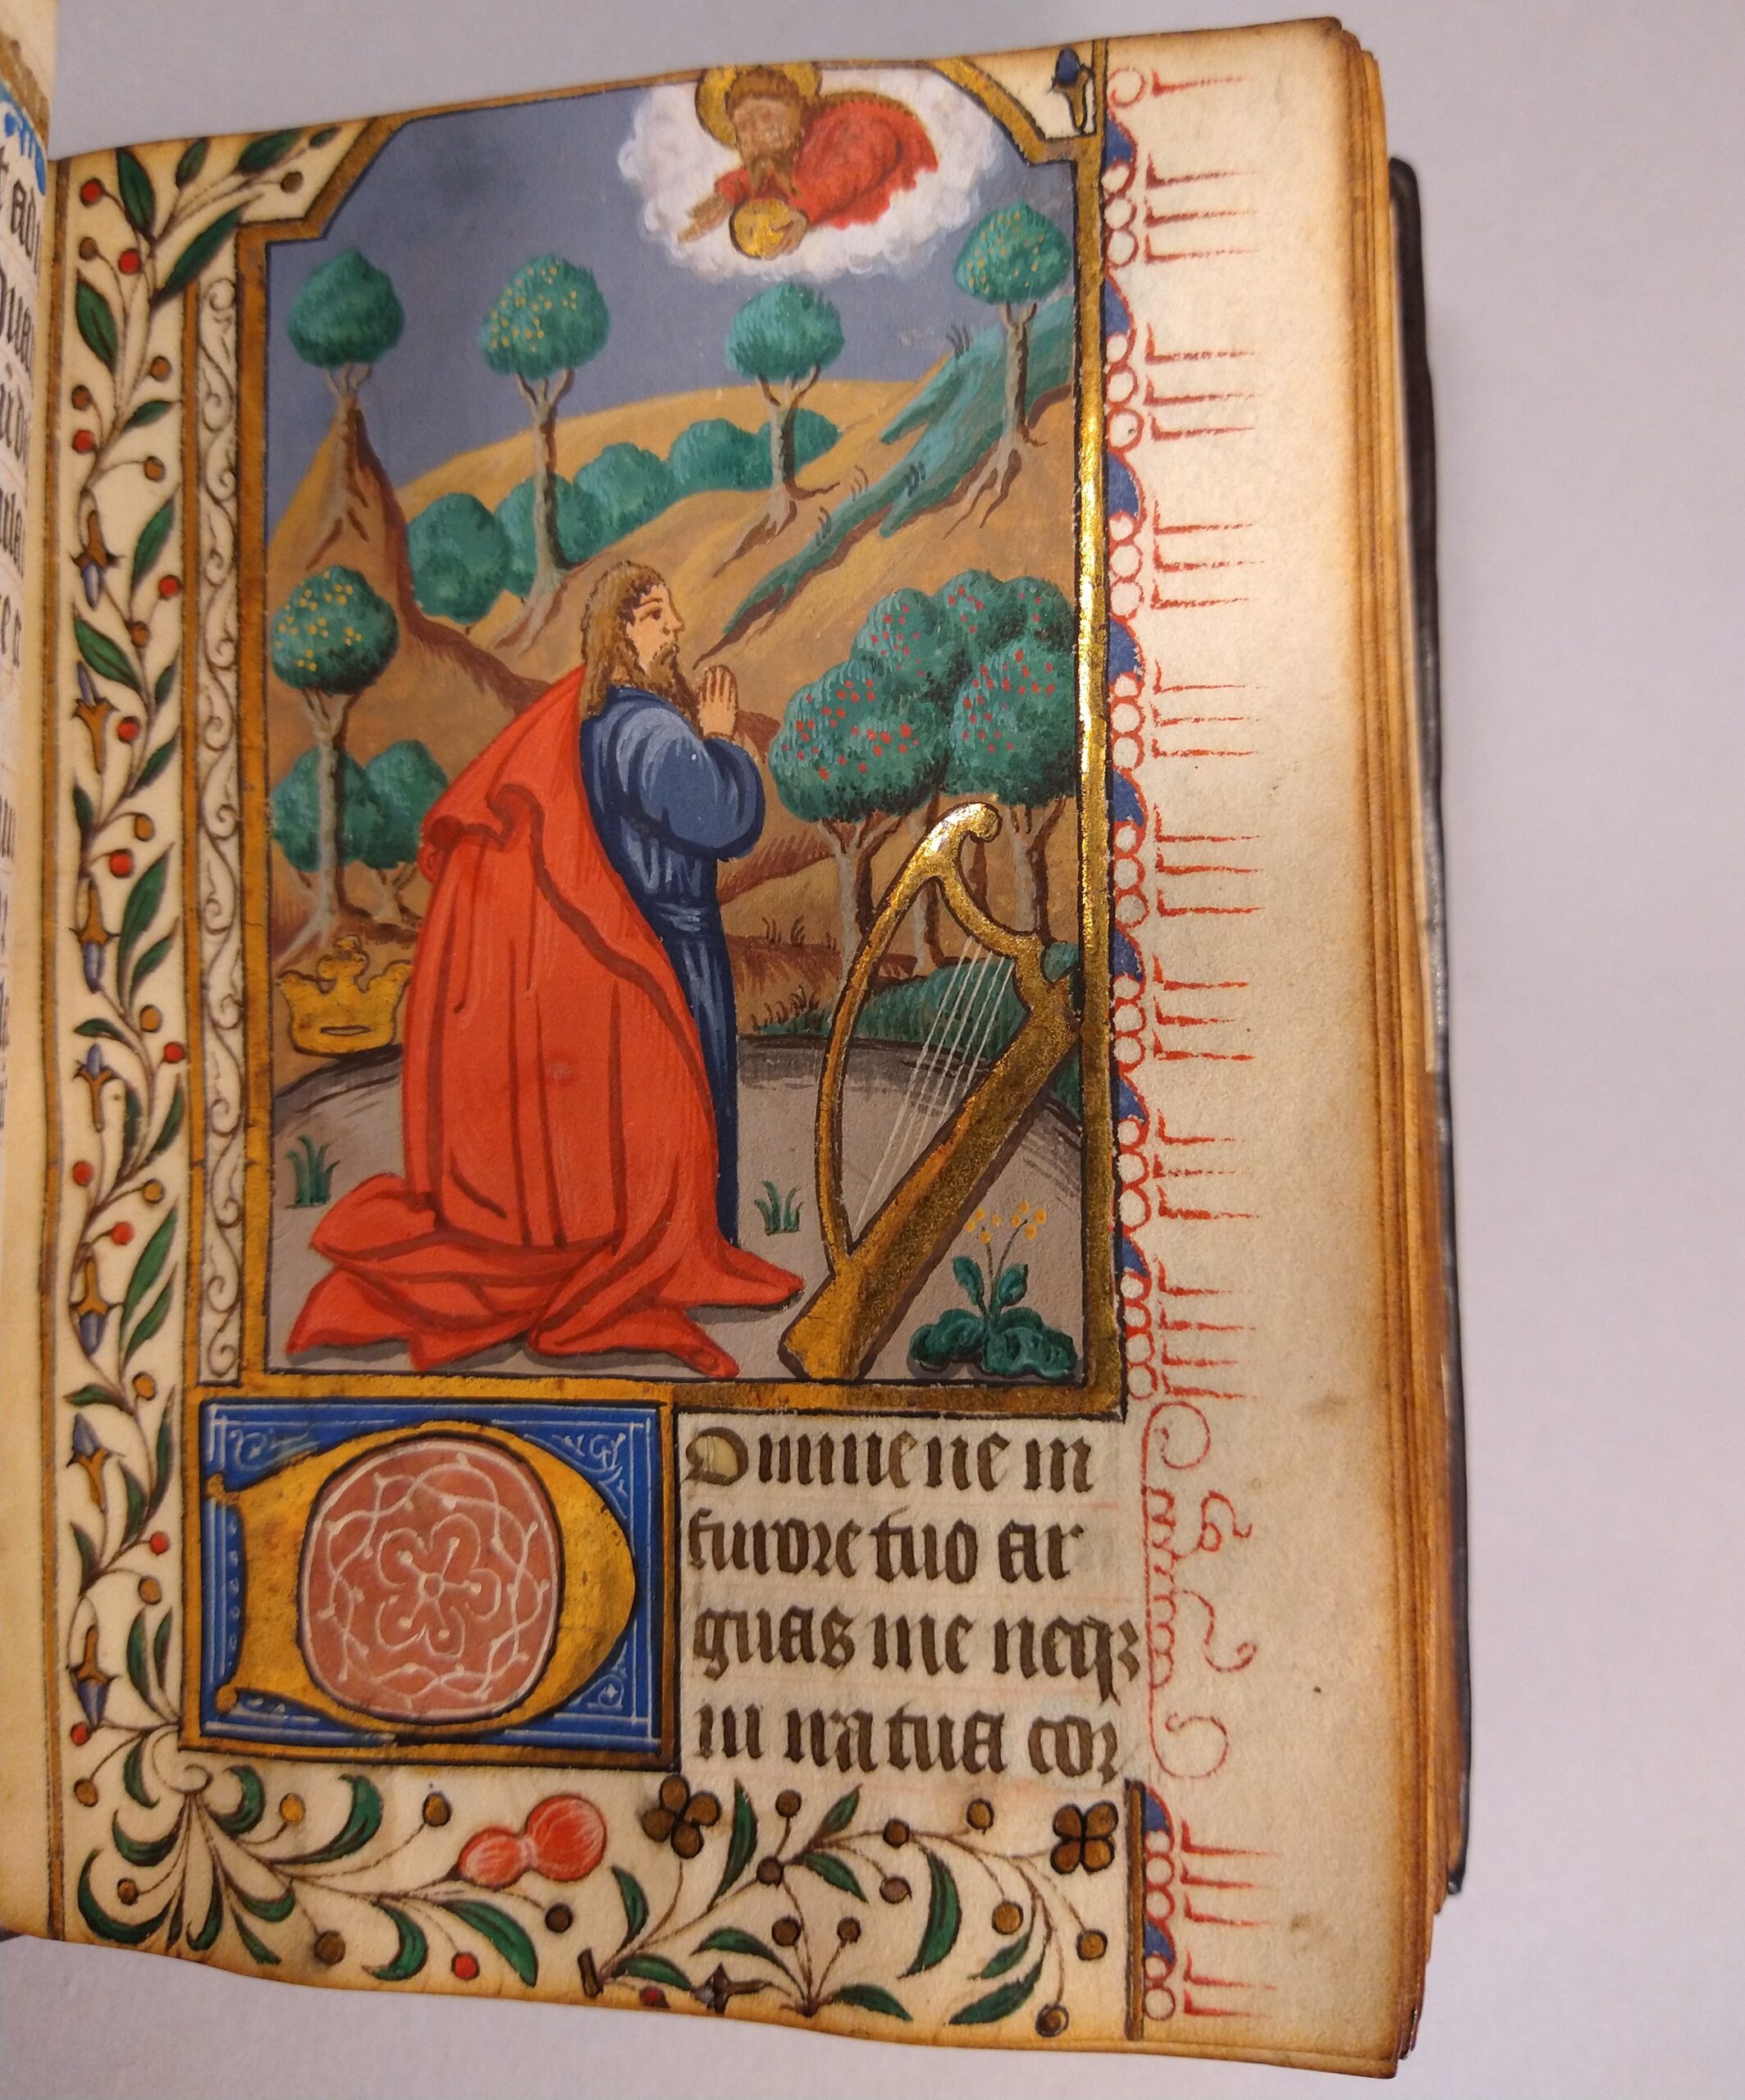 D Domine ne in
furore tuo ar
guas me neqꝫ
in ira tua cor